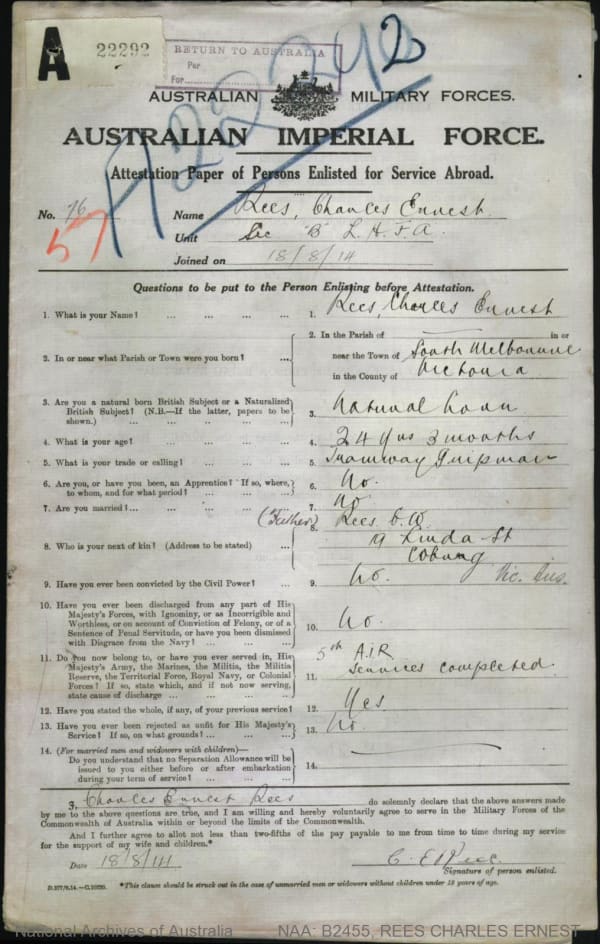 A 22292
RETURN TO AUSTRALIA
Per
For
22292
AUSTRALIAN MILITARY FORCES.
AUSTRALIAN IMPERIAL FORCE.
Attestation Paper of Persons Enlisted for Service Abroad.
No. 76 Name Rees, Charles Ernest
57 Unit Sec "B" L.H.F.A.
Joined on 18/8/14
Questions to be put to the Person Enlisting before Attestation.
1. What is your Name? ... ... ... ... 1. Rees, Charles Ernest
2. In or near what Parish or Town were you born? ... 2. In the Parish of in or
near the Town of South Melbourne
in the County of Victoria
3. Are you a natural born British Subject or a Naturalized
British Subject? (N.B.—If the latter, papers to be
shown.) ... ... ... ... ... 3. Natural born
4. What is your age? ... ... ... ... 4. 24 yrs 3 months
5. What is your trade or calling? ... ... ... 5. Tramway Gripman
6. Are you, or have you been, an Apprentice? If so, where,
to whom, and for what period? ... ... ... 6. No.
7. Are you married? ... ... ... ... 7. No
8. Who is your next of kin? (Address to be stated) ... 8. (Father) Rees
Linda St
Coburg
Vic. Aus.
9. Have you ever been convicted by the Civil Power? ... 9. No.
10. Have you ever been discharged from any part of His
Majesty's Forces, with Ignominy, or as Incorrigible and
Worthless, or on account of Conviction of Felony, or of a
Sentence of Penal Servitude, or have you been dismissed
with Disgrace from the Navy? ... ... ... 10. No.
11. Do you now belong to, or have you ever served in, His
Majesty's Army, the Marines, the Militia, the Militia
Reserve, the Territorial Force, Royal Navy, or Colonial
Forces? If so, state which, and if not now serving,
state cause of discharge ... ... ... ... 11. 5th A.I.R.
Services completed.
12. Have you stated the whole, if any, of your previous service? 12. Yes
13. Have you ever been rejected as unfit for His Majesty's
Service? If so, on what grounds? ... ... ... 13. No.
14. (For married men and widowers with children)—
Do you understand that no Separation Allowance will be
issued to you either before or after embarkation
during your term of service? ... ... ... 14.
I, Charles Ernest Rees do solemnly declare that the above answers made
by me to the above questions are true, and I am willing and hereby voluntarily agree to serve in the Military Forces of the
Commonwealth of Australia within or beyond the limits of the Commonwealth.
And I further agree to allot not less than two-fifths of the pay payable to me from time to time during my service
for the support of my wife and children.*
Date 18/8/14 C. E. Rees
Signature of person enlisted.
*This clause should be struck out in the case of unmarried men or widowers without children under 18 years of age.
National Archives of Australia NAA: B2455, REES CHARLES ERNEST